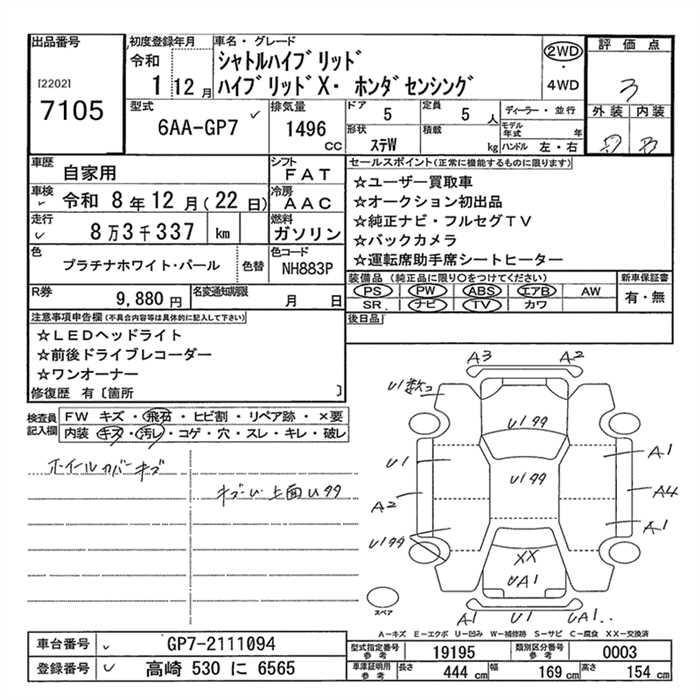 出品番号
[2202]
7105
初度登録年月
令和
1 12 月
車名・グレード
シャトルハイブリッド
ハイブリッドX・ ホンダセンシング
2WD
・
4WD
評価点
3
外装 内装
B
型式
6AA-GP7
排気量
1496
CC
ドア
5
定員
5 人
ディーラー・並行
モデル年式 年
形状
ステW
積載
kg
ハンドル 左・右
車歴
自家用
シフト
FAT
車検
令和 8 年 12 月 ( 22 日)
冷房
AAC
走行
8 万 3 千 337 km
燃料
ガソリン
色
プラチナホワイト・パール
色替
色コード
NH883P
R券
9,880 円
名変通知期限
月 日
セールスポイント(正常に機能するものに限ります)
☆ユーザー買取車
☆オークション初出品
☆純正ナビ・フルセグTV
☆バックカメラ
☆運転席助手席シートヒーター
装備品 (純正品に限り○をつけてください)
PS PW ABS エアB AW
SR ナビ TV カワ
新車保証書
有・無
後日品
注意事項申告欄(不具合内容等は具体的に記入して下さい)
☆LEDヘッドライト
☆前後ドライブレコーダー
☆ワンオーナー
修復歴 有〔箇所 〕
検査員記入欄
FW キズ・飛石・ヒビ割・リペア跡・×要
内装 キズ・汚レ・コゲ・穴・スレ・キレ・破レ
ホイールカバーキズ
上面
A3 A2
U1
U1
A1
A2
A4
A1
XX
UA1
A1 U1 UA1
スペア
A-キズ E-エクボ U-凹み W-補修跡 S-サビ C-腐食 XX-交換済
車台番号
GP7-2111094
登録番号
高崎 530 に 6565
型式指定番号
参考
19195
類別区分番号
参考
0003
車庫証明用
参考
長さ
444 cm
幅
169 cm
高さ
154 cm